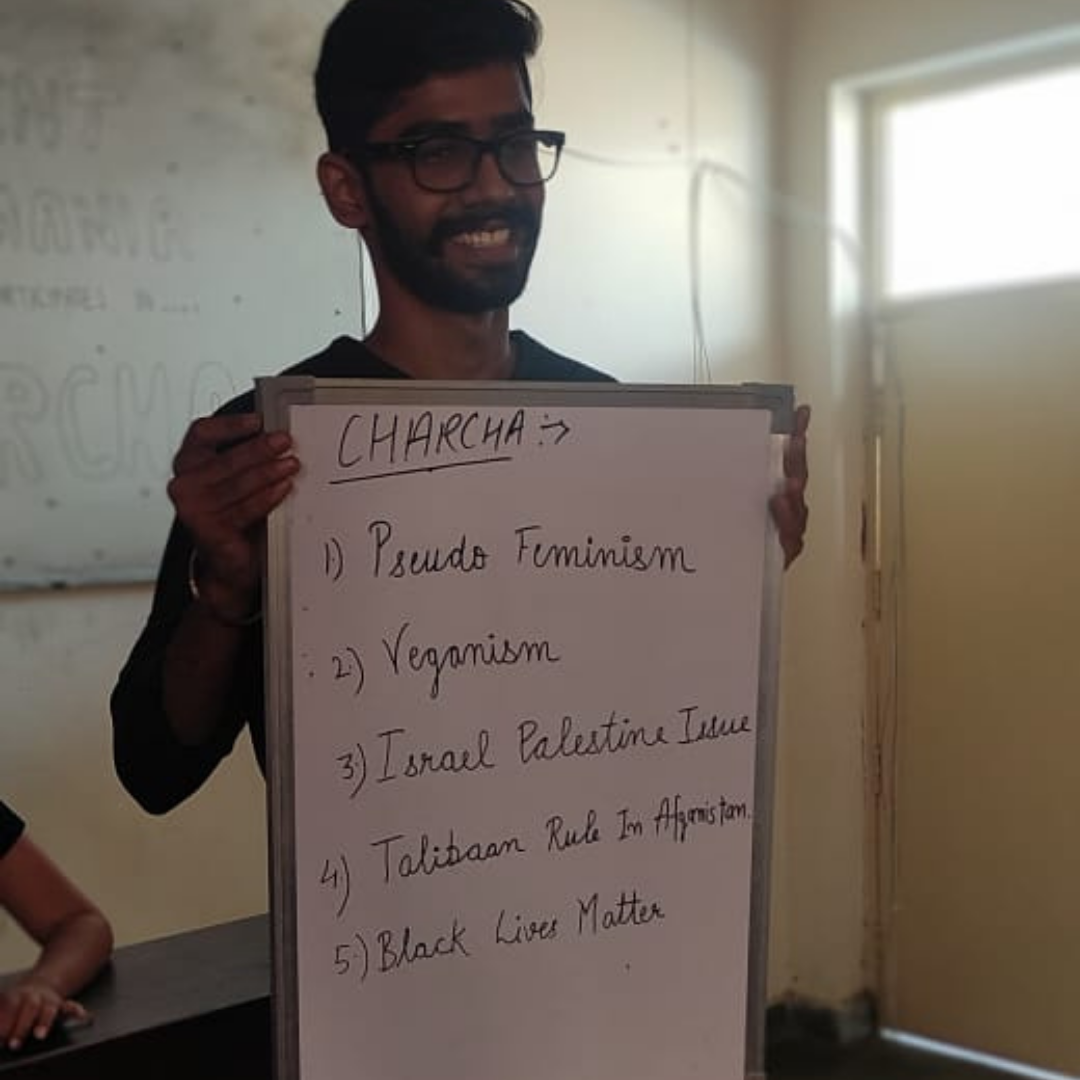 CHARCHA :->
1) Pseudo Feminism
2) Veganism
3) Israel Palestine Issue
4) Talibaan Rule In Afganistan.
5) Black Lives Matter